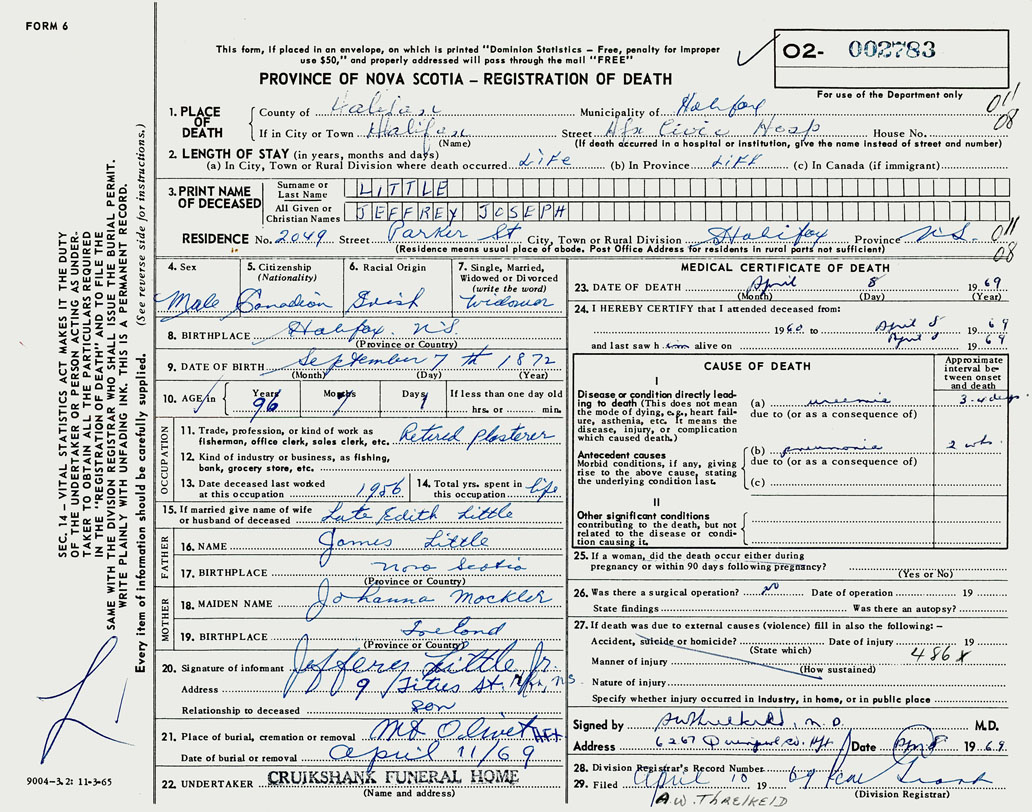 FORM 6
This form, if placed in an envelope, on which is printed "Dominion Statistics – Free, penalty for improper
use $50," and properly addressed will pass through the mail "FREE"
PROVINCE OF NOVA SCOTIA – REGISTRATION OF DEATH
02- 002783
For use of the Department only
011
08
1. PLACE OF DEATH
County of Halifax Municipality of Halifax
If in City or Town Halifax Street Hfx Civic Hosp House No.
(Name) (If death occurred in a hospital or institution, give the name instead of street and number)
2. LENGTH OF STAY (in years, months and days)
(a) In City, Town or Rural Division where death occurred LIFE (b) In Province LIFE (c) In Canada (if immigrant)
3. PRINT NAME OF DECEASED
Surname or Last Name LITTLE
All Given or Christian Names JEFFREY JOSEPH
RESIDENCE No. 2049 Street Parker St City, Town or Rural Division Halifax Province N.S.
(Residence means usual place of abode. Post Office Address for residents in rural parts not sufficient)
011
08
4. Sex Male
5. Citizenship (Nationality) Canadian
6. Racial Origin Irish
7. Single, Married, Widowed or Divorced (write the word) Widower
8. BIRTHPLACE Halifax N.S.
(Province or Country)
9. DATE OF BIRTH September 7th 1872
(Month) (Day) (Year)
10. AGE in Years 96 Months 7 Days 1 If less than one day old hrs. or min.
OCCUPATION
11. Trade, profession, or kind of work as fisherman, office clerk, sales clerk, etc. Retired Plasterer
12. Kind of industry or business, as fishing, bank, grocery store, etc.
13. Date deceased last worked at this occupation 1956
14. Total yrs. spent in this occupation life
15. If married give name of wife or husband of deceased Late Edith Little
FATHER
16. NAME James Little
17. BIRTHPLACE Nova Scotia
(Province or Country)
MOTHER
18. MAIDEN NAME Johanna Mockler
19. BIRTHPLACE Ireland
(Province or Country)
20. Signature of informant Jeffery Little Jr.
Address 9 Titus St. Hfx, N.S.
Relationship to deceased son
21. Place of burial, cremation or removal Mt Olivet Hfx
Date of burial or removal April 11/69
22. UNDERTAKER CRUIKSHANK FUNERAL HOME
(Name and address)
MEDICAL CERTIFICATE OF DEATH
23. DATE OF DEATH April 8 19 69
(Month) (Day) (Year)
24. I HEREBY CERTIFY that I attended deceased from:
1960 to April 8 19 69
and last saw him alive on April 8 19 69
CAUSE OF DEATH
Approximate interval between onset and death
I
Disease or condition directly leading to death (This does not mean the mode of dying, e.g., heart failure, asthenia, etc. It means the disease, injury, or complication which caused death.)
(a) uremia 3-4 days
due to (or as a consequence of)
Antecedent causes
Morbid conditions, if any, giving rise to the above cause, stating the underlying condition last.
(b) pneumonia 2 wks
due to (or as a consequence of)
(c)
II
Other significant conditions
contributing to the death, but not related to the disease or condition causing it.
25. If a woman, did the death occur either during pregnancy or within 90 days following pregnancy?
(Yes or No)
26. Was there a surgical operation? no Date of operation 19
State findings Was there an autopsy?
27. If death was due to external causes (violence) fill in also the following: –
Accident, suicide or homicide? Date of injury 19
(State which)
486X
Manner of injury
(How sustained)
Nature of injury
Specify whether injury occurred in Industry, in home, or in public place
Signed by AWThrelkeld, M.D. M.D.
Address 6267 Quinpool Rd. Hfx Date 8 1969
28. Division Registrar's Record Number
29. Filed April 10 19 69
(Division Registrar)
A.W. THRELKELD
SEC. 14 – VITAL STATISTICS ACT MAKES IT THE DUTY
OF THE UNDERTAKER OR PERSON ACTING AS UNDER-
TAKER TO OBTAIN ALL THE PARTICULARS REQUIRED
IN THE "REGISTRATION OF DEATH" AND TO FILE THE
SAME WITH THE DIVISION REGISTRAR WHO SHALL ISSUE THE BURIAL PERMIT.
WRITE PLAINLY WITH UNFADING INK. THIS IS A PERMANENT RECORD.
Every item of information should be carefully supplied. (See reverse side for instructions.)
9004-3.2: 11-3-65